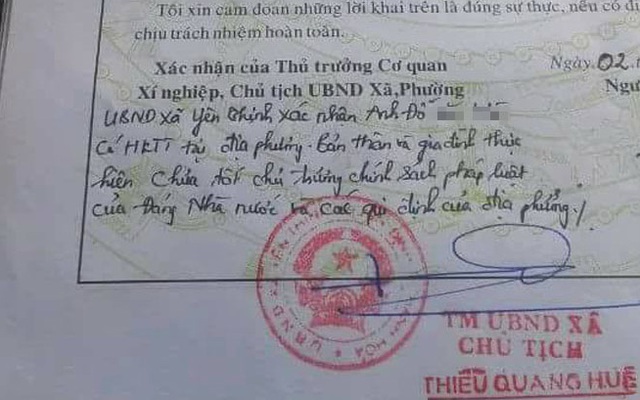 Tôi xin cam đoan những lời khai trên là đúng sự thực, nếu có
chịu trách nhiệm hoàn toàn.
Xác nhận của Thủ trưởng Cơ quan
Ngày 02
Xí nghiệp, Chủ tịch UBND Xã,Phường
UBND xã Yên Thịnh xác nhận Anh Đỗ
Có HKTT tại địa phương. Bản thân và gia đình thực
hiện chưa tốt chủ trương chính sách pháp luật
của Đảng Nhà nước và các qui định của địa phương./
TM UBND XÃ
CHỦ TỊCH
THIỀU QUANG HUẾ